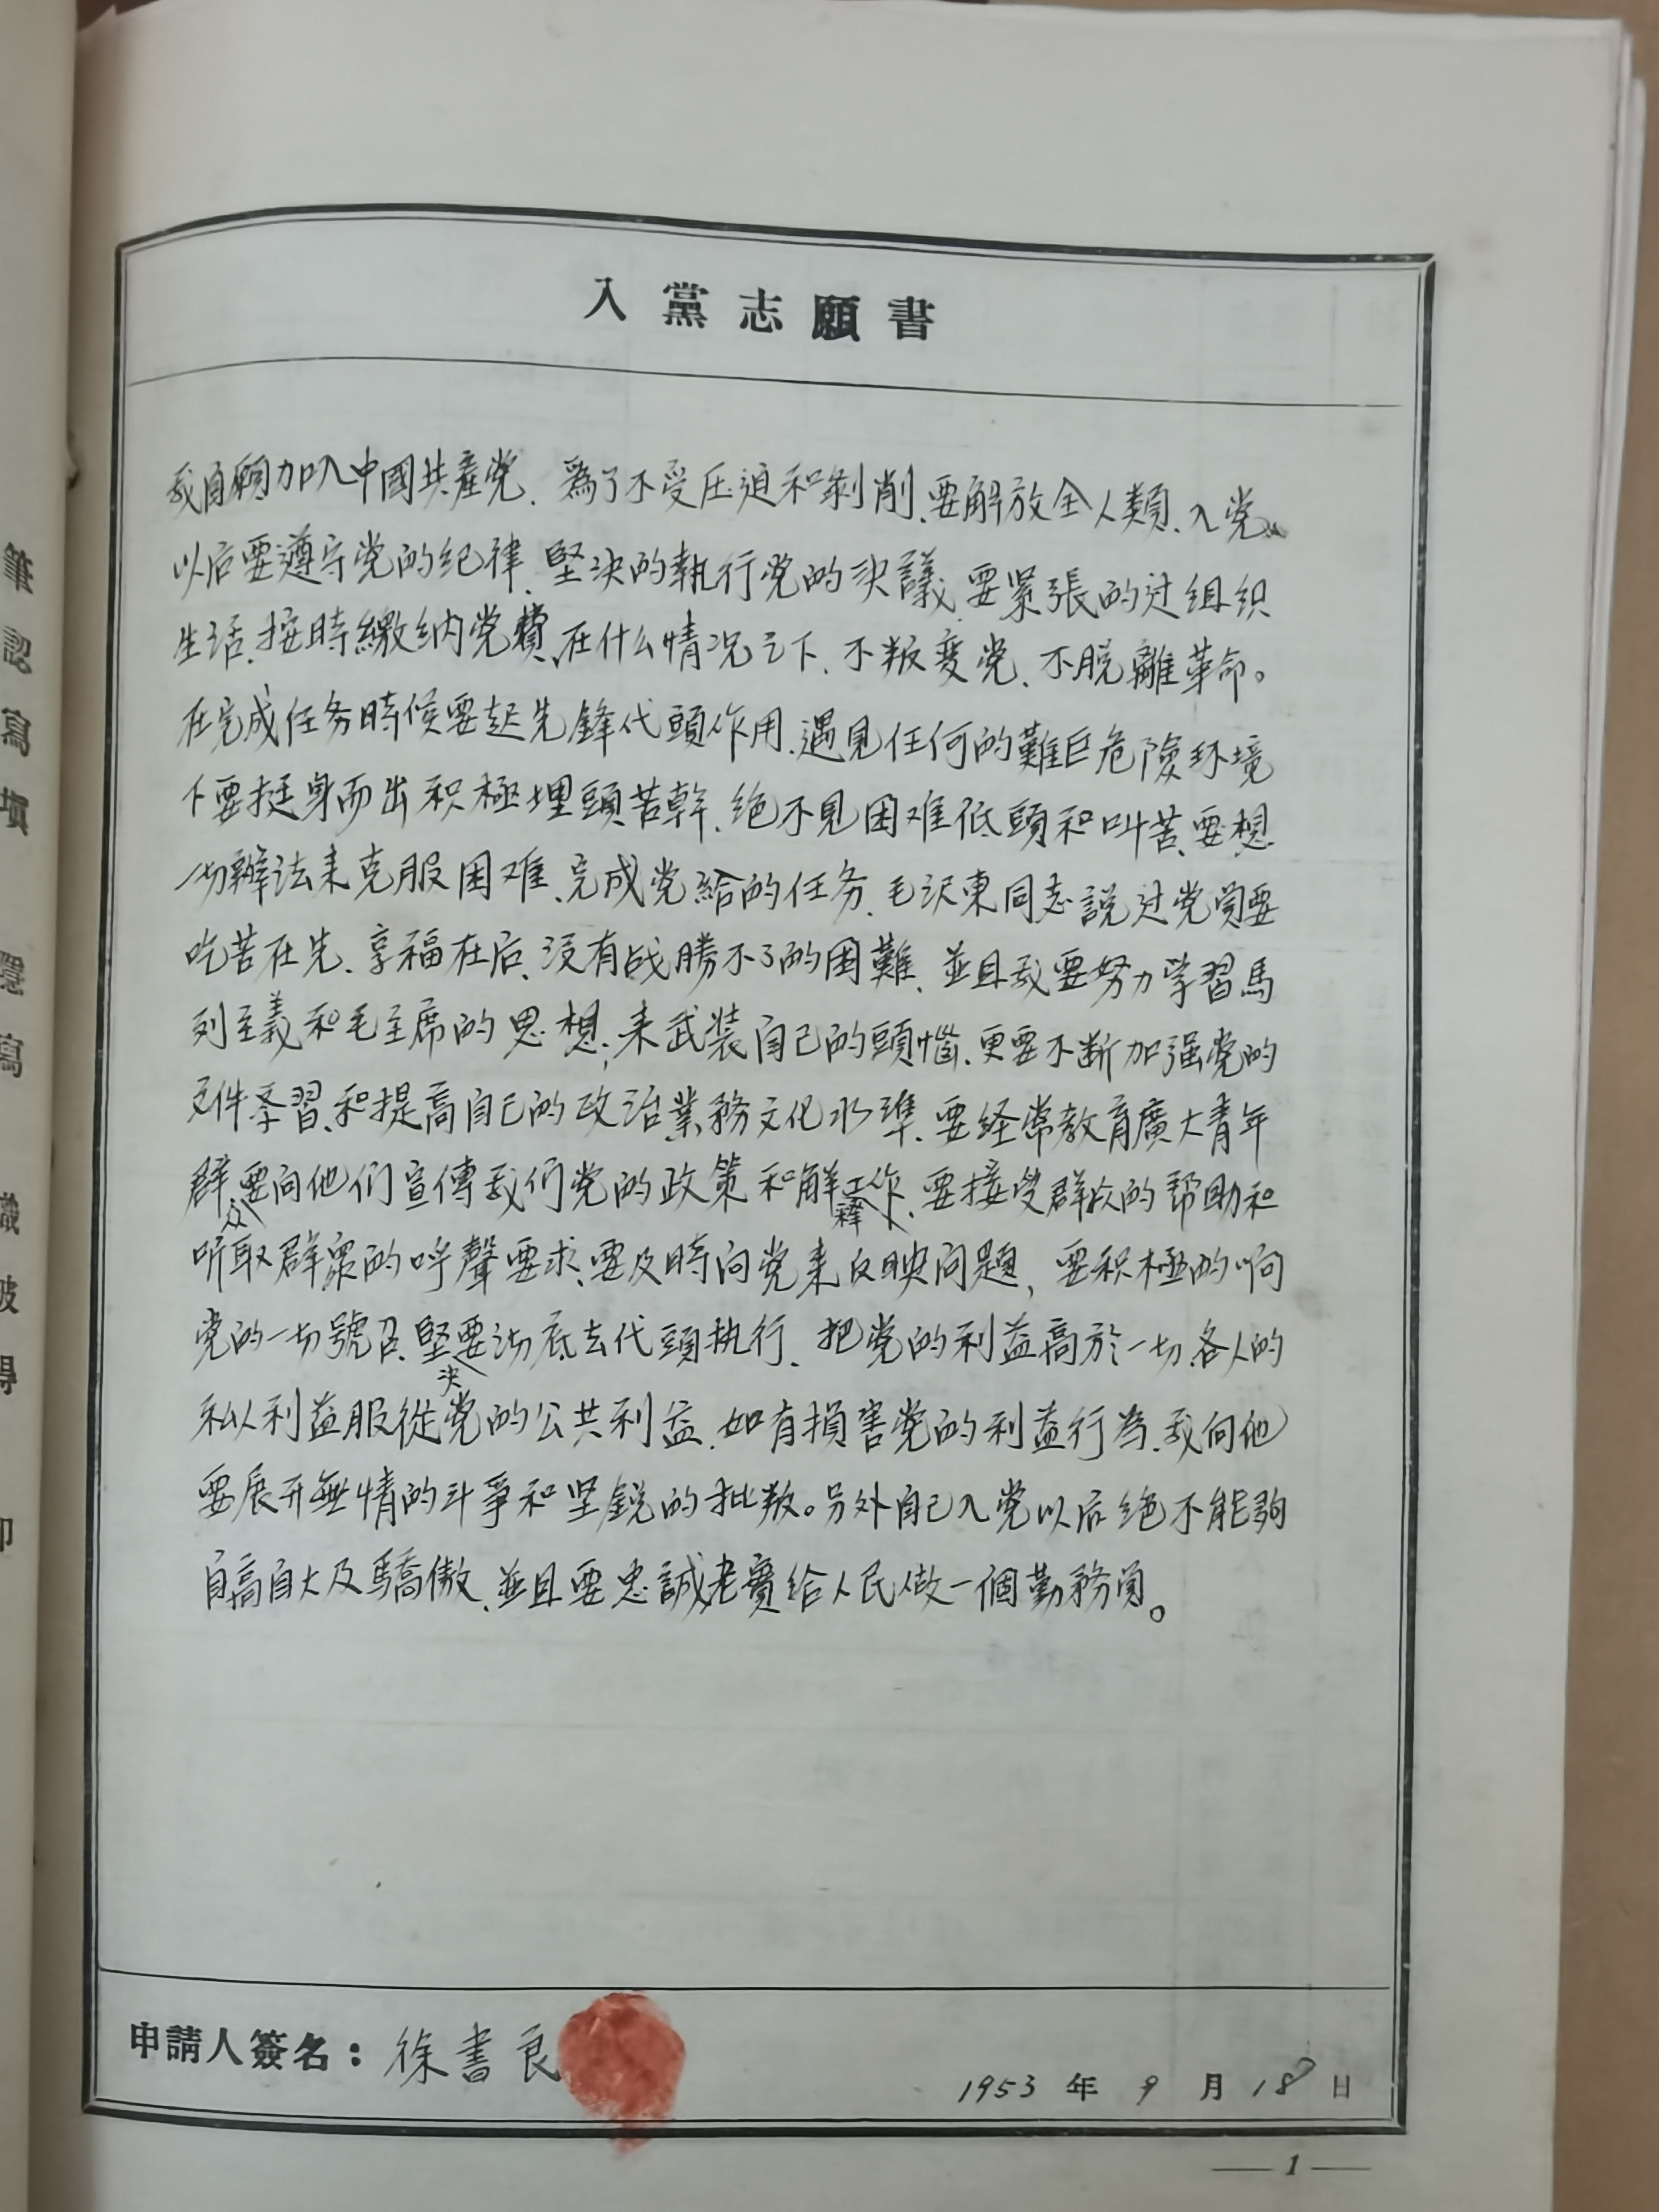 入黨志願書
我自願加入中國共產党、為了不受压迫和剝削、要解放全人類、入党
以后要遵守党的纪律、堅决的執行党的决議、要緊張的过组织
生活、按時繳纳党費、在什么情况之下、不叛变党、不脱離革命。
在完成任务時候要起先鋒代頭作用、遇見任何的難巨危險环境
下要挺身而出积極埋頭苦幹、绝不見困难低頭和叫苦、要想
一切辦法来克服困难、完成党給的任务、毛沢東同志説过党員要
吃苦在先、享福在后、没有战勝不了的困難、並且我要努力学習馬
列主義和毛主席的思想、来武装自己的頭惱、更要不断加强党的
文件学習、和提高自己的政治業務文化水準、要经常教育廣大青年
群众要向他们宣傳我们党的政策和解释工作、要接受群众的帮助和
听取群眾的呼聲要求、要及時向党来反映问題、要积極的响
党的一切號召、堅决要沏底去代頭执行、把党的利益高於一切、各人的
私以利益服從党的公共利益、如有損害党的利益行为、我向他
要展开無情的斗爭和坚鋭的批叛。另外自己入党以后绝不能夠
自高自大及驕傲、並且要忠誠老實给人民做一個勤務員。
申請人簽名：徐書良
1953 年 9 月 18 日
— 1 —
筆認寫填 隱寫 被得 印